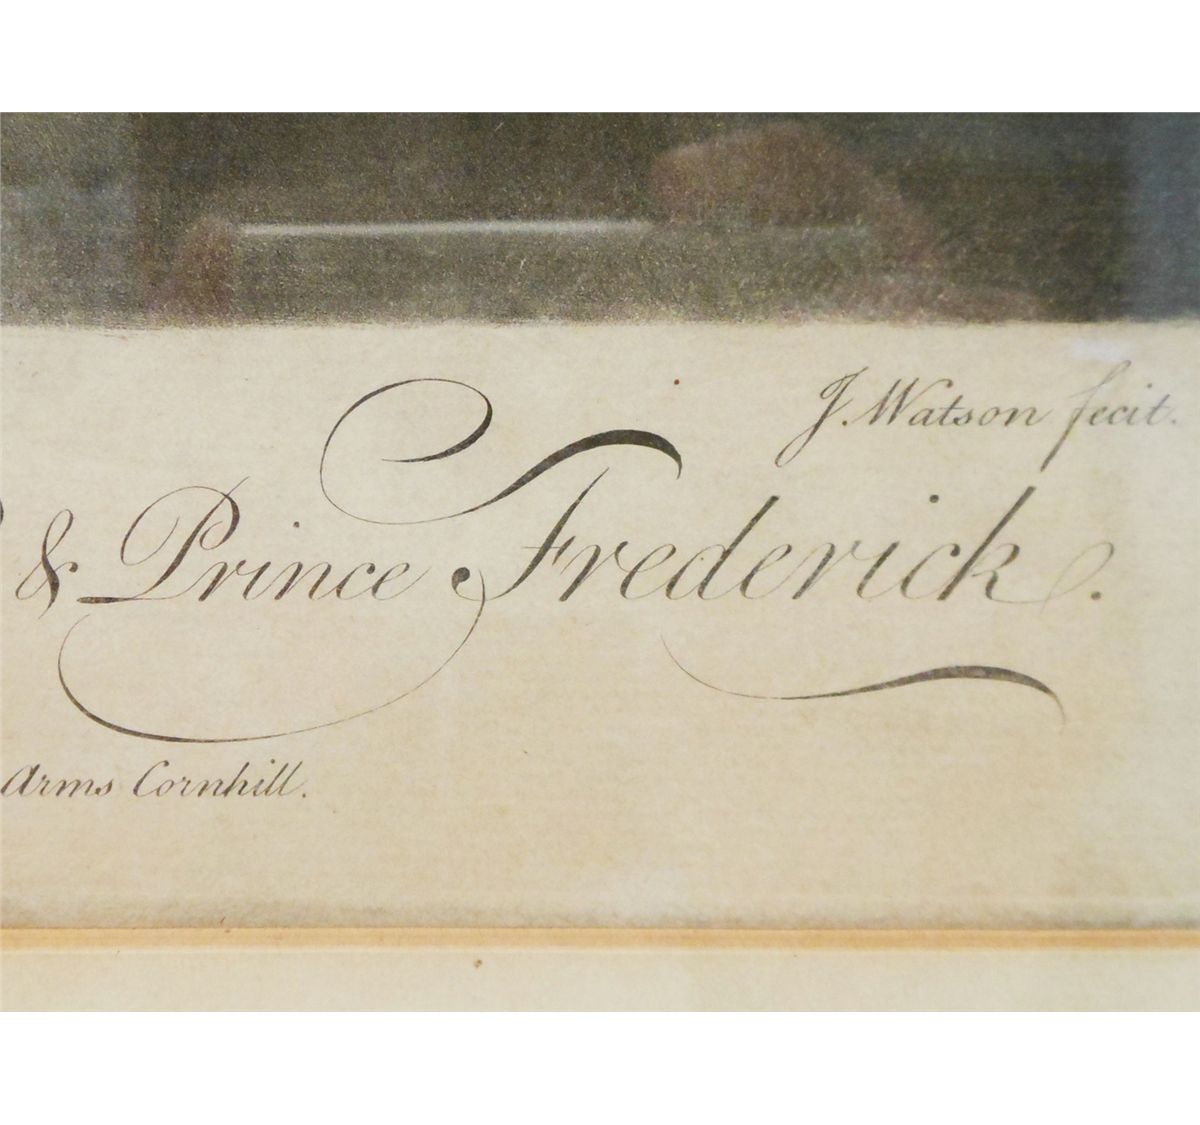 J. Watson fecit.
& Prince Frederick.
Arms Cornhill.